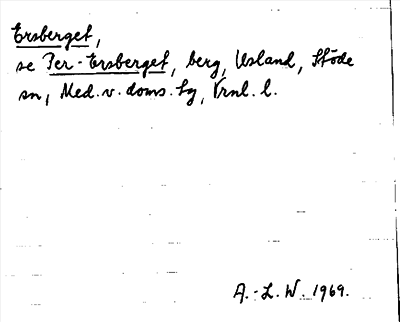 Ersberget,
se Per-Ersberget, berg, Usland, Stöde
sn, Med. v. doms. hg, Vrnl. l.
A.-L. W. 1969.